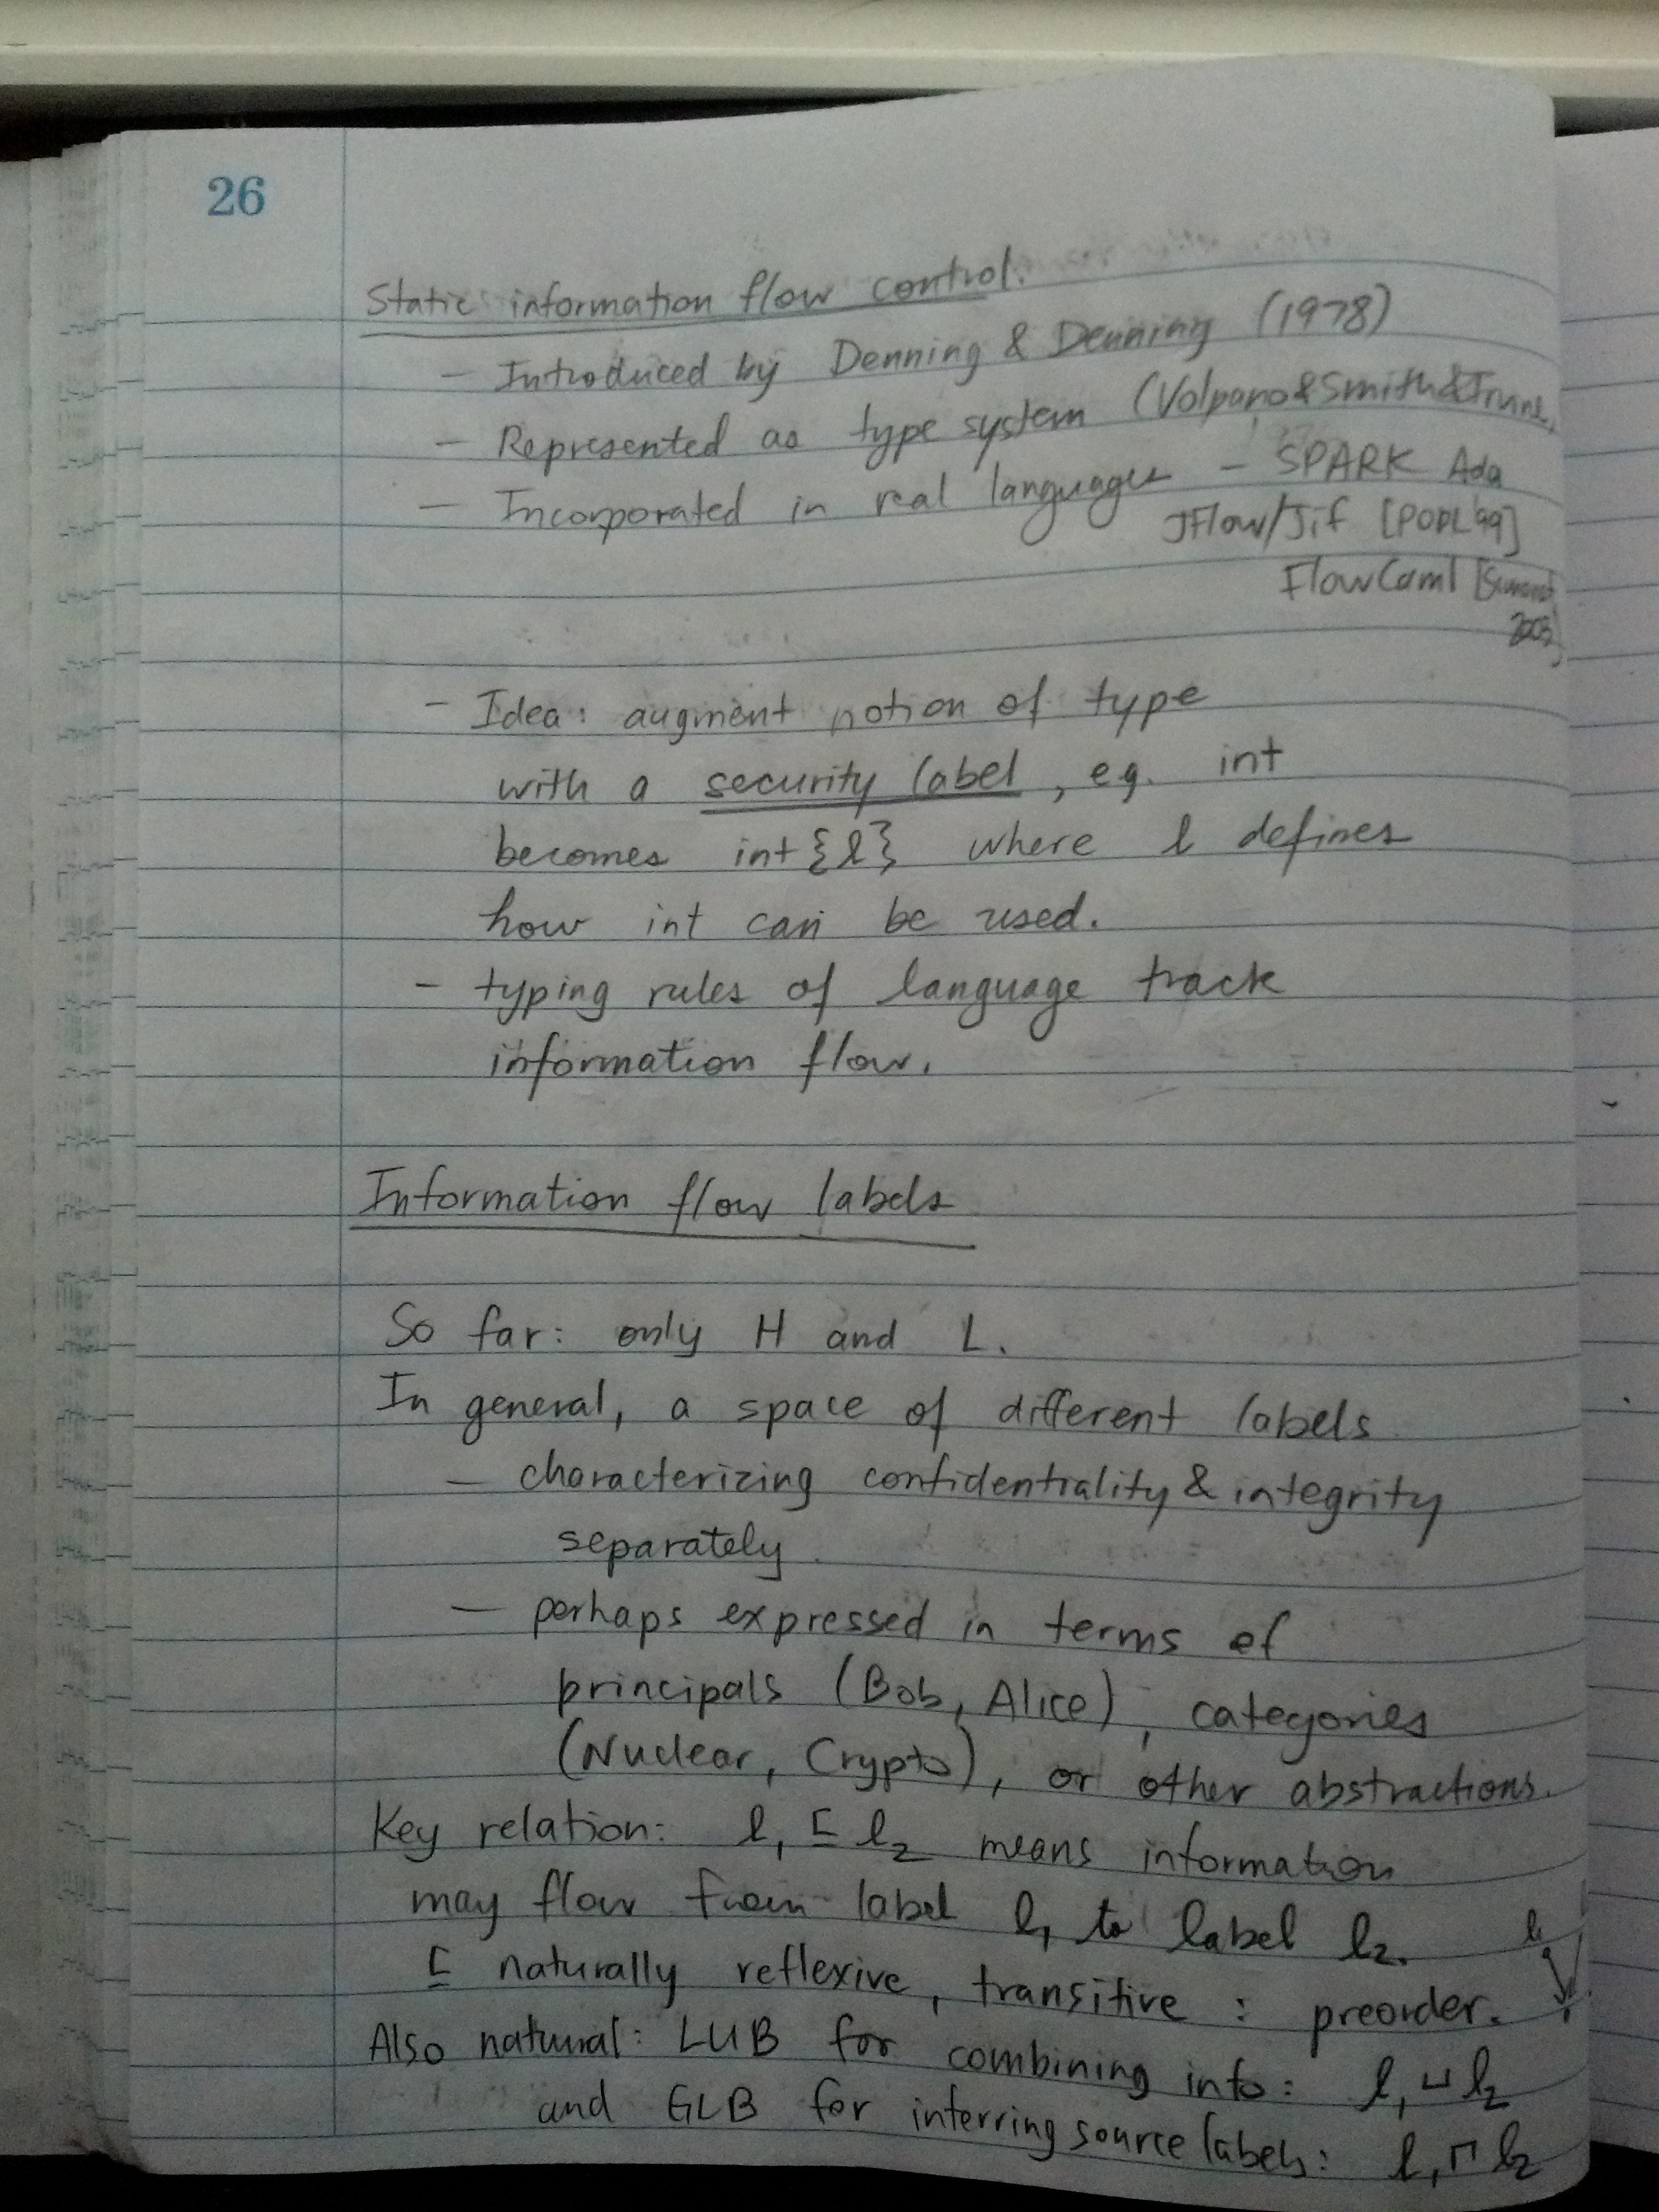 26
Static information flow control.
- Introduced by Denning & Denning (1978)
- Represented as type system (Volpano&Smith&Irvine,
- Incorporated in real languages - SPARK Ada
JFlow/Jif [POPL'99]
FlowCaml [
2003]
- Idea: augment notion of type
with a security label, e.g. int
becomes int{l} where l defines
how int can be used.
- typing rules of language track
information flow.
Information flow labels
So far: only H and L.
In general, a space of different labels
- characterizing confidentiality & integrity
separately
- perhaps expressed in terms of
principals (Bob, Alice), categories
(Nuclear, Crypto), or other abstractions.
Key relation: l₁ ⊑ l₂ means information
may flow from label l₁ to label l₂.
⊑ naturally reflexive, transitive : preorder.
Also natural: LUB for combining info: l₁ ⊔ l₂
and GLB for inferring source labels: l₁ ⊓ l₂